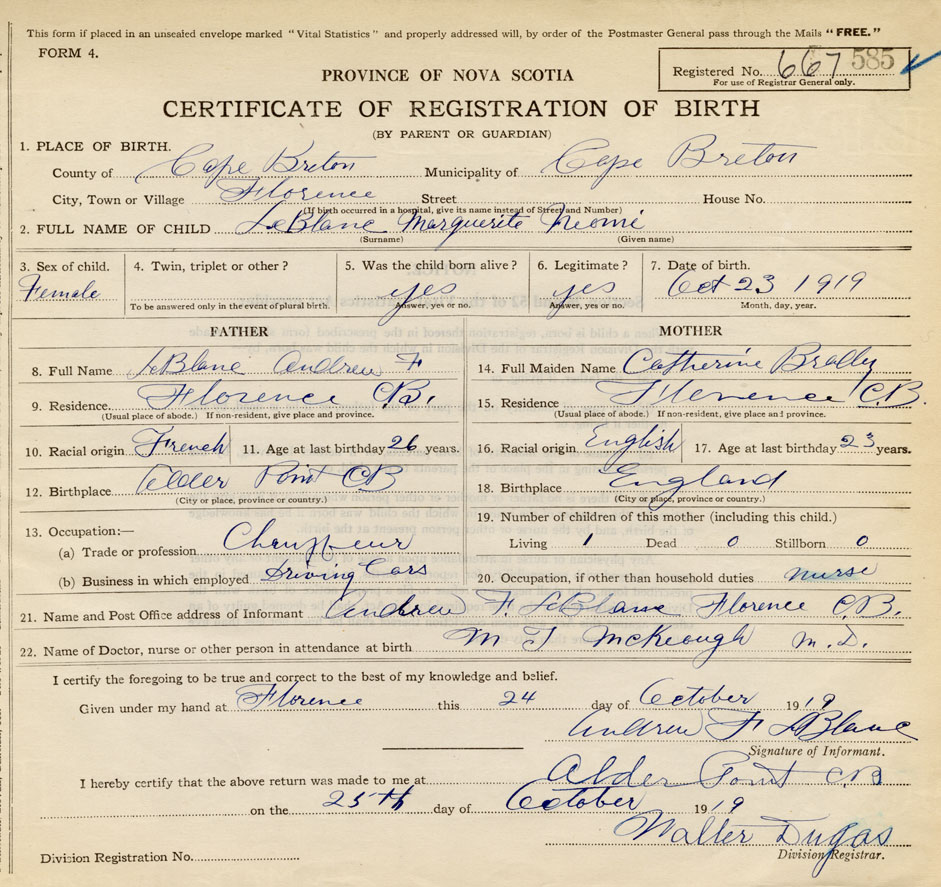 This form if placed in an unsealed envelope marked "Vital Statistics" and properly addressed will, by order of the Postmaster General pass through the Mails "FREE."
FORM 4.
Registered No. 667 585
For use of Registrar General only.
PROVINCE OF NOVA SCOTIA
CERTIFICATE OF REGISTRATION OF BIRTH
(BY PARENT OR GUARDIAN)
1. PLACE OF BIRTH.
County of Cape Breton Municipality of Cape Breton
City, Town or Village Florence Street House No.
(If birth occurred in a hospital, give its name instead of Street and Number)
2. FULL NAME OF CHILD LeBlanc Marguerite Niomi
(Surname) (Given name)
3. Sex of child. 4. Twin, triplet or other? 5. Was the child born alive? 6. Legitimate? 7. Date of birth.
Female yes yes Oct 23 1919
To be answered only in the event of plural birth. Answer, yes or no. Answer, yes or no. Month, day, year.
FATHER MOTHER
8. Full Name LeBlanc Andrew F 14. Full Maiden Name Catherine Bradley
9. Residence Florence C.B. 15. Residence Florence C.B.
(Usual place of abode.) If non-resident, give place and province. (Usual place of abode.) If non-resident, give place and province.
10. Racial origin French 11. Age at last birthday 26 years. 16. Racial origin English 17. Age at last birthday 23 years.
12. Birthplace Alder Point CB 18. Birthplace England
(City or place, province or country.) (City or place, province or country.)
13. Occupation:— 19. Number of children of this mother (including this child.)
(a) Trade or profession Chauffeur Living 1 Dead 0 Stillborn 0
(b) Business in which employed Driving Cars 20. Occupation, if other than household duties nurse
21. Name and Post Office address of Informant Andrew F. LeBlanc Florence C.B.
22. Name of Doctor, nurse or other person in attendance at birth M T McKeough M.D.
I certify the foregoing to be true and correct to the best of my knowledge and belief.
Given under my hand at Florence this 24 day of October 1919
Andrew F LeBlanc
Signature of Informant.
I hereby certify that the above return was made to me at Alder Point CB
on the 25th day of October 1919
Walter Dugas
Division Registrar.
Division Registration No.